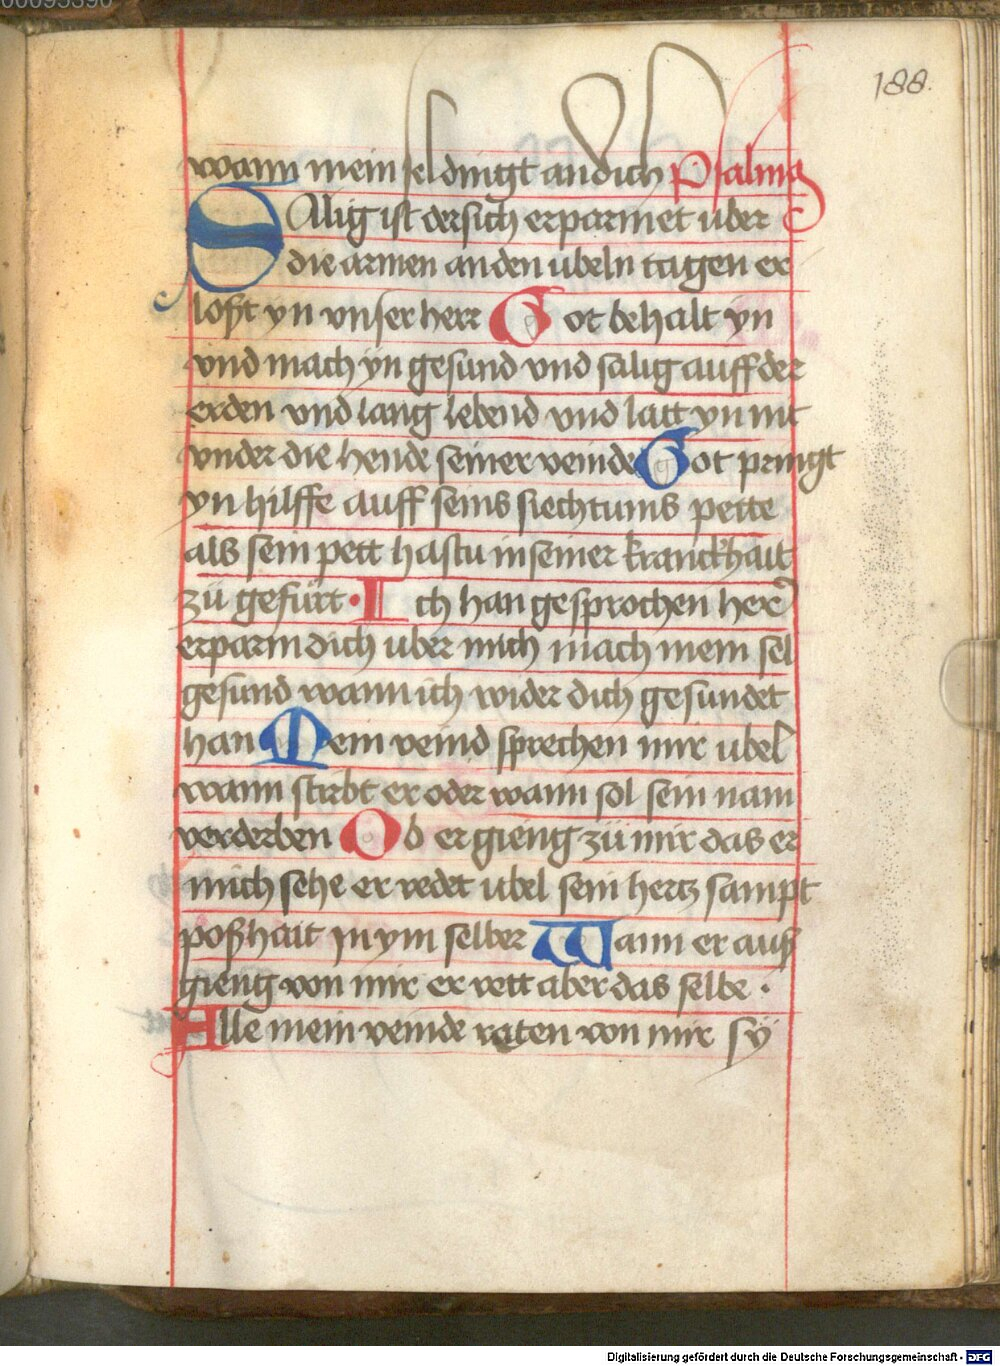 00095390
188.
wann mein sel dingt an dich Psalm9
SAlig ist der sich erparmet uber
die armen an den ubeln tagen er
lost yn unser herr Got behalt yn
vnd mach yn gesund vnd sälig auff der
erden vnd lang lebend vnd latt yn nit
vnder die hende seiner veinde Got pringt
yn hilffe auff seins siechtums pette
als sein pett hastu in seiner kranckhait
zü gefürt · Ich han gesprochen herr
erparm dich uber mich mach mein sel
gesund wann ich wider dich gesundet
han Mein veind sprechen mir ubel
wann stirbt er oder wann sol sein nam
verderben Ob er gieng zü mir das er
mich sehe er redet ubel sein hertz sampt
poßhait jn ym selber Wann er auß
gieng von mir er rett aber das selbe ·
Alle mein veinde raten von mir sy
Digitalisierung gefördert durch die Deutsche Forschungsgemeinschaft - DFG